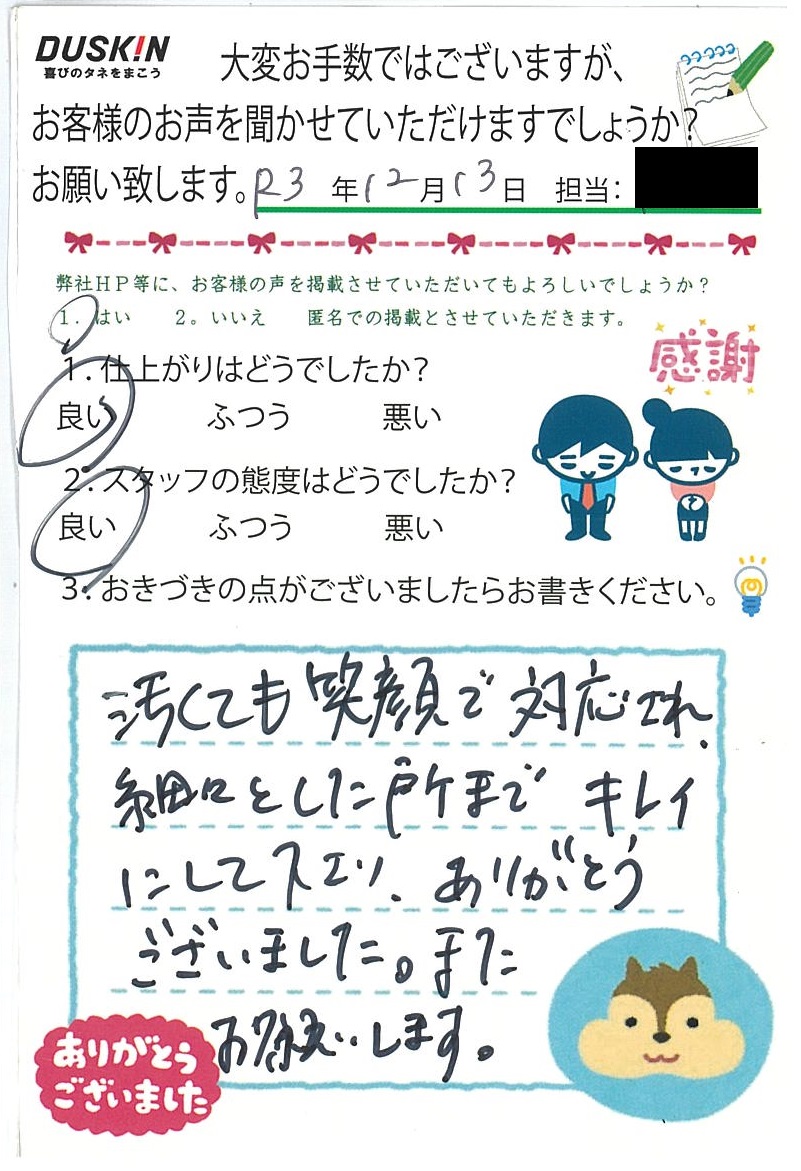 DUSK!N
喜びのタネをまこう
大変お手数ではございますが、
お客様のお声を聞かせていただけますでしょうか?
お願い致します。R3 年12月13日 担当:
弊社HP等に、お客様の声を掲載させていただいてもよろしいでしょうか?
1. はい 2。いいえ 匿名での掲載とさせていただきます。
感謝
1. 仕上がりはどうでしたか?
良い ふつう 悪い
2. スタッフの態度はどうでしたか?
良い ふつう 悪い
3. おきづきの点がございましたらお書きください。
汚くても笑顔で対応され、
細々とした所まで キレイ
にして
ありがとう
ございました。また
お願いします。
ありがとう
ございました